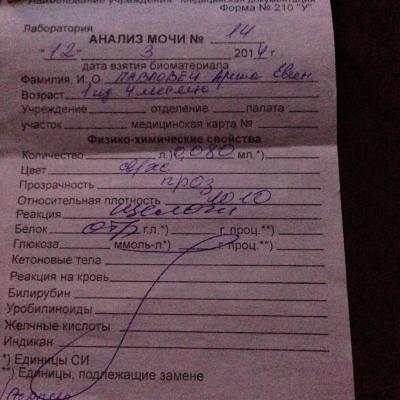 Наименование учреждения Медицинская документация
Форма № 210 "У"
Лаборатория
АНАЛИЗ МОЧИ № 14
"12" 3 2014 г.
дата взятия биоматериала
Фамилия, И. О.
Возраст 1 год 4 месяца
Учреждение отделение палата
участок медицинская карта №
Физико-химические свойства
Количество л.) 0,080 мл.*)
Цвет с/ж
Прозрачность проз
Относительная плотность 1010
Реакция щелочн
Белок отр г.л.*) г. проц.**)
Глюкоза ммоль-л.*) г. проц.**)
Кетоновые тела
Реакция на кровь
Билирубин
Уробилиноиды
Желчные кислоты
Индикан
*) Единицы СИ
**) Единицы, подлежащие замене